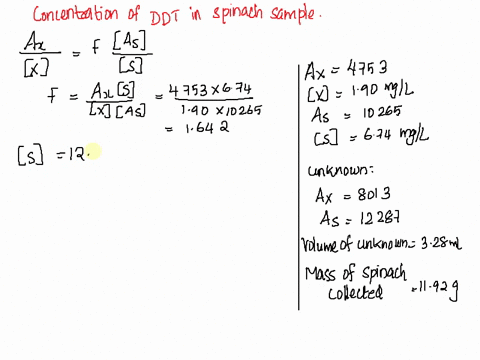 Concentration of DDT in spinach sample.
Ax/[X] = f [As]/[S]
f = Ax[S]/[X][As] = 4753 x 6.74/1.90 x 10265
= 1.642
[S] = 12.
Ax = 4753
[X] = 1.90 mg/L
As = 10265
[S] = 6.74 mg/L
unknown:
Ax = 8013
As = 12287
Volume of unknown = 3.28mL
Mass of spinach
collected = 11.92g